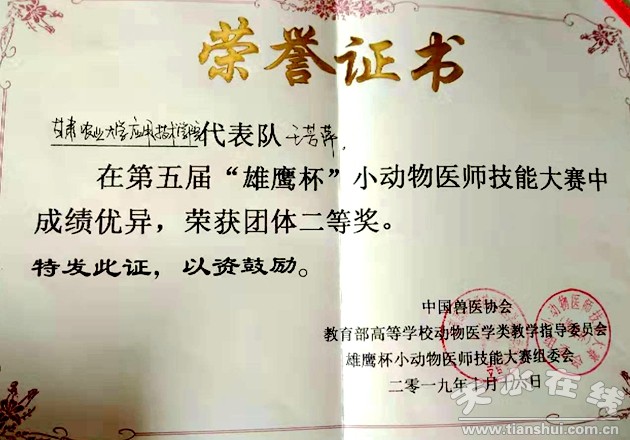 荣誉证书
甘肃农业大学应用技术学院代表队王若萍，
在第五届“雄鹰杯”小动物医师技能大赛中
成绩优异，荣获团体二等奖。
特发此证，以资鼓励。
中国兽医协会
教育部高等学校动物医学类教学指导委员会
雄鹰杯小动物医师技能大赛组委会
二零一九年十月 日
天水在线
www.tianshui.com.cn